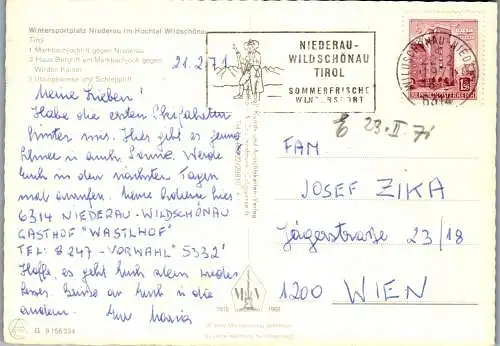 Wintersportplatz Niederau im Hochtal Wildschönau
Tirol
1 Markbachjochlift gegen Niederau
2 Haus Berglift am Markbachjoch gegen
Wilden Kaiser
3 Übungswiese und Schlepplift
21.2.71
NIEDERAU-
WILDSCHÖNAU
TIROL
SOMMERFRISCHE
WINTERSPORT
WILDSCHÖNAU-NIEDERAU
REPUBLIK ÖSTERREICH
E 23.II.71
Meine Lieben!
Habe die ersten Skifahrten
hinter mir. Hier gibt es genug
Schnee u. auch Sonne. Werde
Euch in den nächsten Tagen
mal anrufen. Meine Adresse hier:
6314 NIEDERAU-WILDSCHÖNAU
GASTHOF "WASTLHOF"
TEL: 8247 - VORWAHL 5332!
Hoffe, es geht Euch allen
Grüße an Euch u. die
anderen. Eure Maria
FAM
JOSEF ZIKA
Jägerstraße 23/18
1200 WIEN
9 156 334